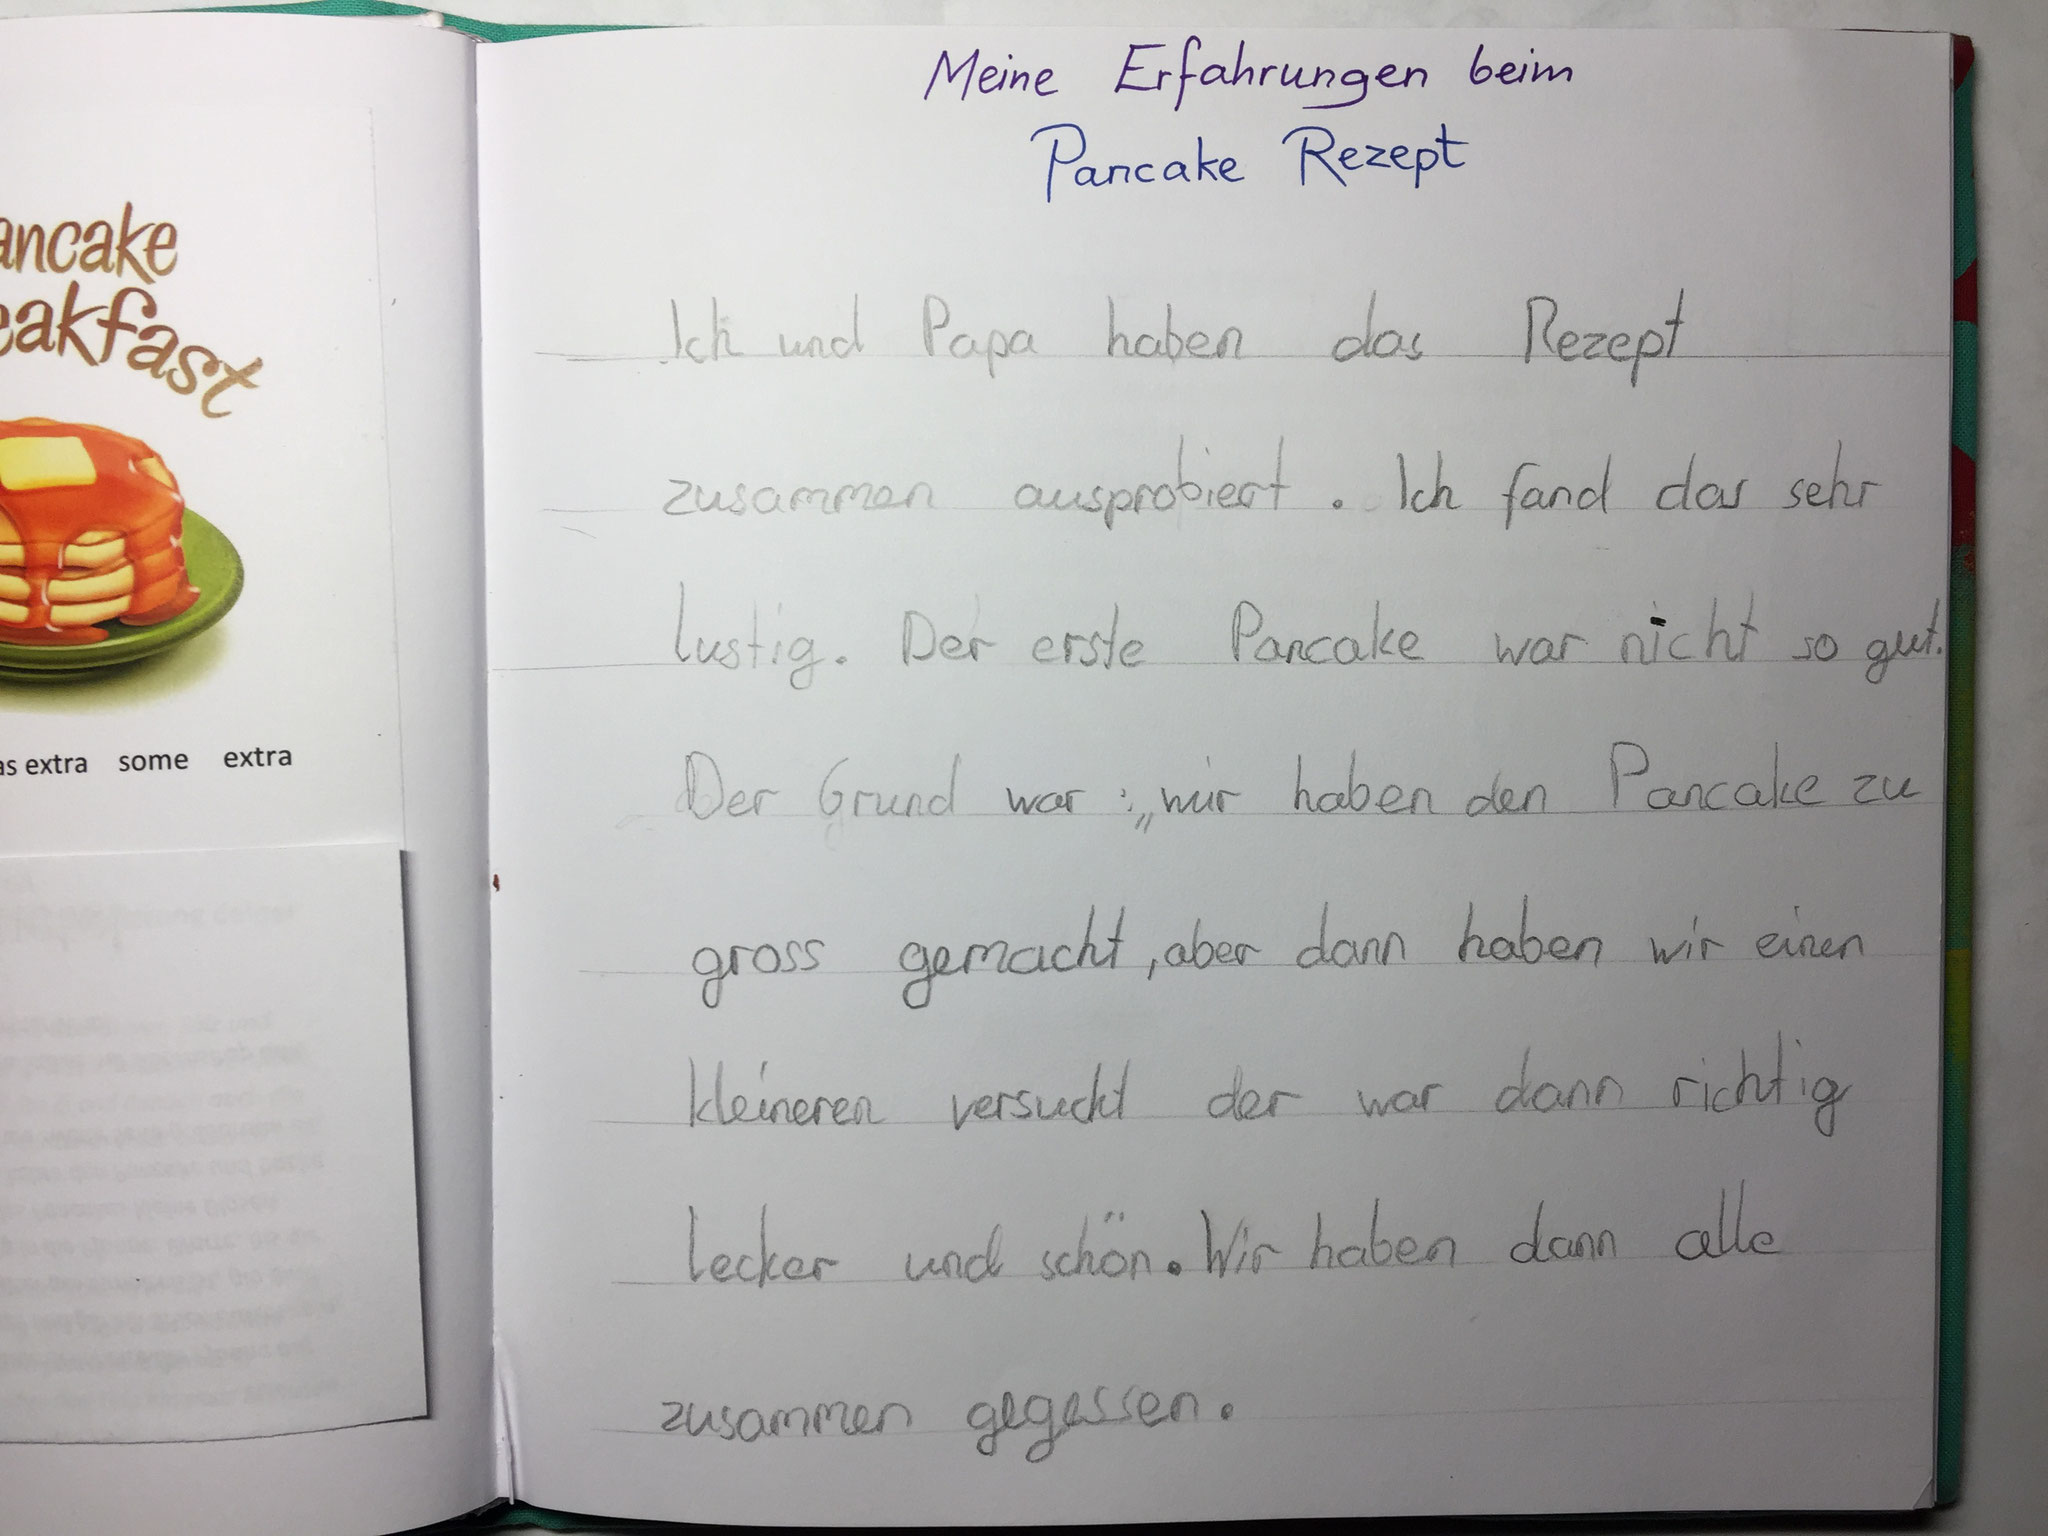 ancake
eakfast
as extra some extra
Meine Erfahrungen beim
Pancake Rezept
Ich und Papa haben das Rezept
zusammen ausprobiert. Ich fand das sehr
lustig. Der erste Pancake war nicht so gut.
Der Grund war: „wir haben den Pancake zu
gross gemacht, aber dann haben wir einen
kleineren versucht der war dann richtig
lecker und schön. Wir haben dann alle
zusammen gegessen.